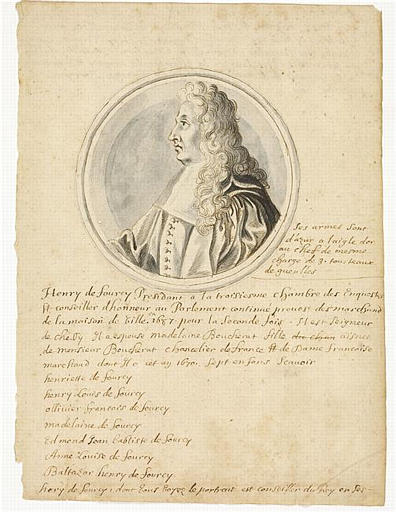 Ses armes sont
d'azur a laigle dor
au chef de mesme
charge de 3. tourteaux
de gueulles
Henry de fourcy Presidant a la troisiesme chambre des Enquestes
Et conseiller dhonneur au Parlement continue prevost des marchand
de la maison de Ville. 1687 pour la Seconde fois. Il est Seigneur
de chesy Il a espousé madelaine Boucherat fille aisnee
de monsieur Boucherat chancelier de France Et de Dame francoise
marchand dont Il a eet ay 1670. Sept enfans Scavoir
henriette de fourcy
henry Louis de fourcy
ollivier francois de fourcy
madelaine de fourcy
Edmond Jean baptiste de fourcy
Anne Louise de fourcy
Baltazar henry de fourcy
hery de fourcy, dont vous voyez le portrait est conseiller du Roy en ses